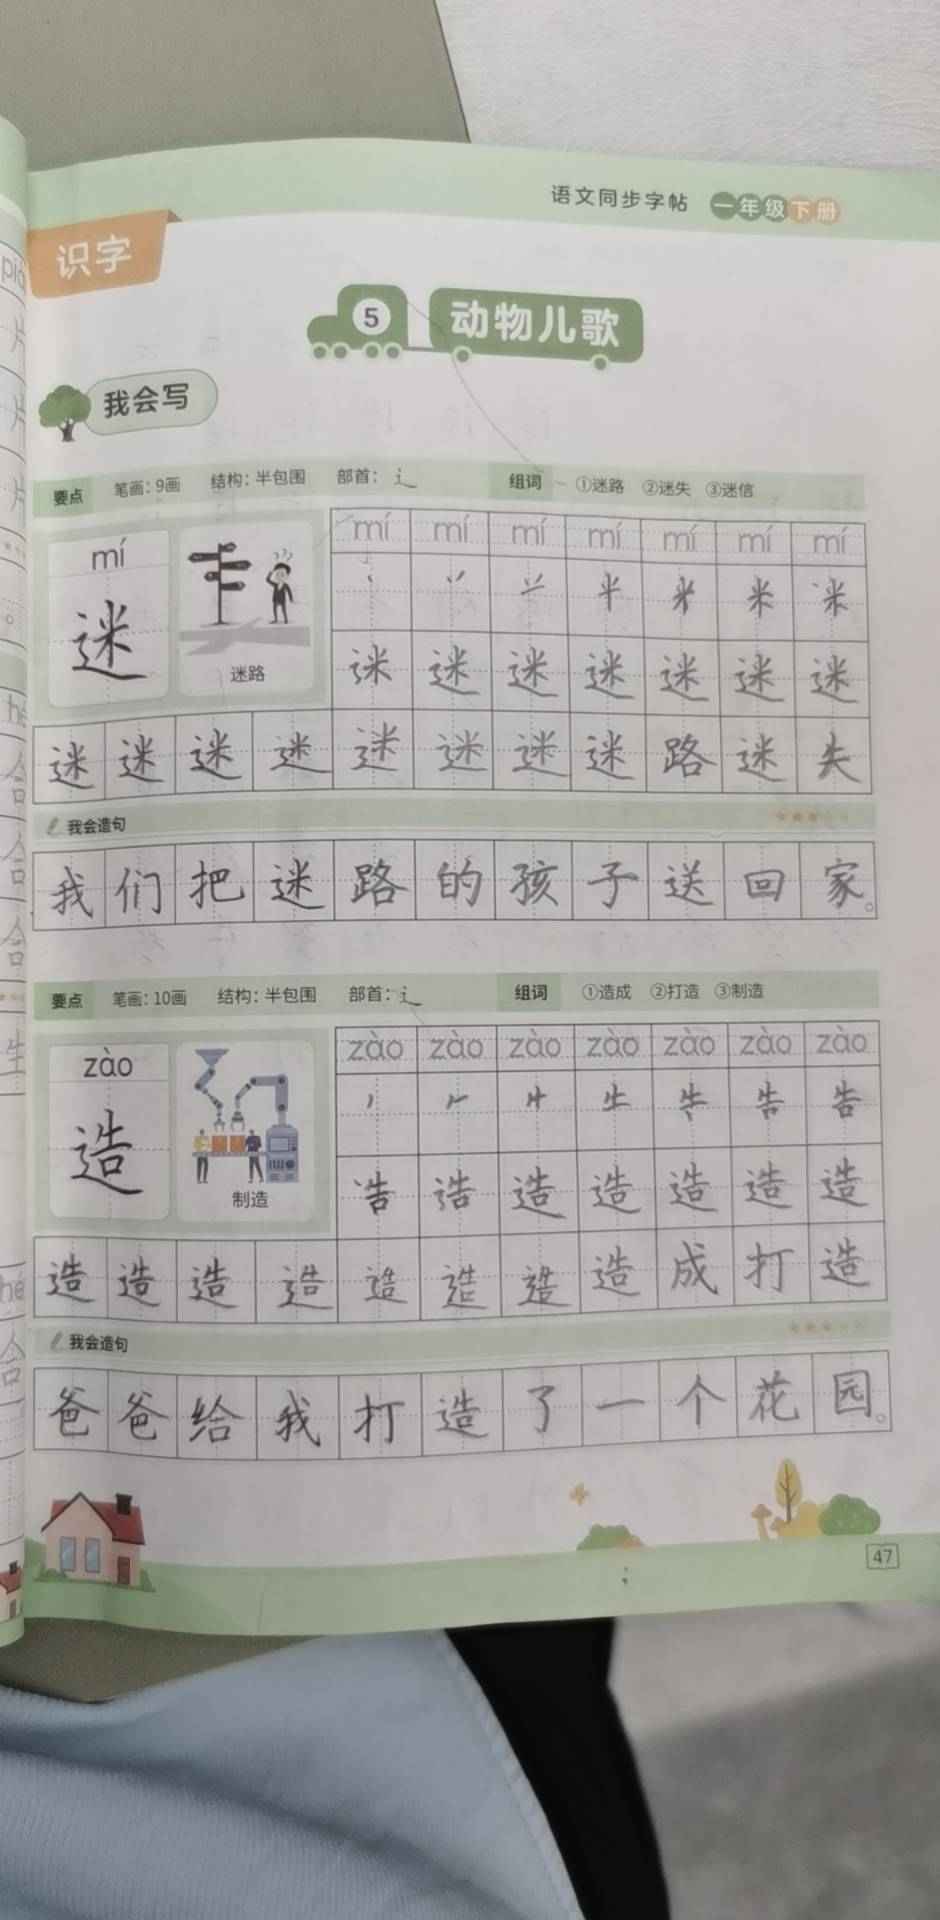 语文同步字帖 一年级下册
识字
5 动物儿歌
我会写
要点 笔画：9画 结构：半包围 部首：辶 组词 ①迷路 ②迷失 ③迷信
mí mí mí mí mí mí mí mí
迷
迷路
迷 迷 迷 迷 迷 迷
迷 迷 迷 迷 迷 迷 迷 迷 路 迷 失
我会造句
我们把迷路的孩子送回家。
要点 笔画：10画 结构：半包围 部首：辶 组词 ①造成 ②打造 ③制造
zào zào zào zào zào zào zào zào
造
制造
造 造 造 造 造
造 造 造 造 造 造 造 造 成 打 造
我会造句
爸爸给我打造了一个花园。
47